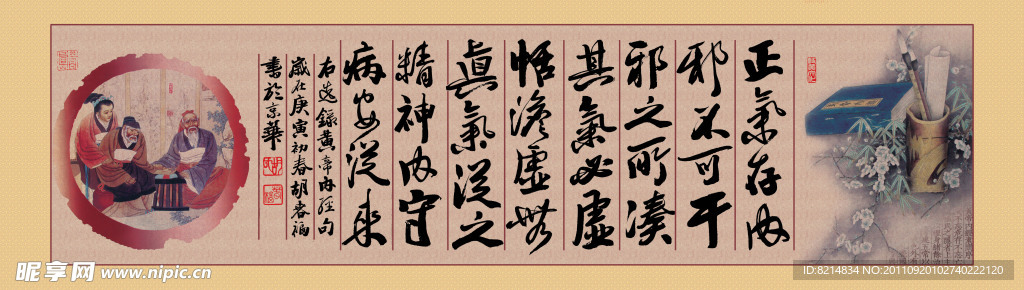 正氣存内
邪不可干
邪之所湊
其氣必虛
恬澹虛無
眞氣從之
精神内守
病安從来
右选錄黄帝内经句
歲在庚寅初春胡春福
書於京華
昵享网 www.nipic.cn
ID:8214834 NO:20110920102740222120